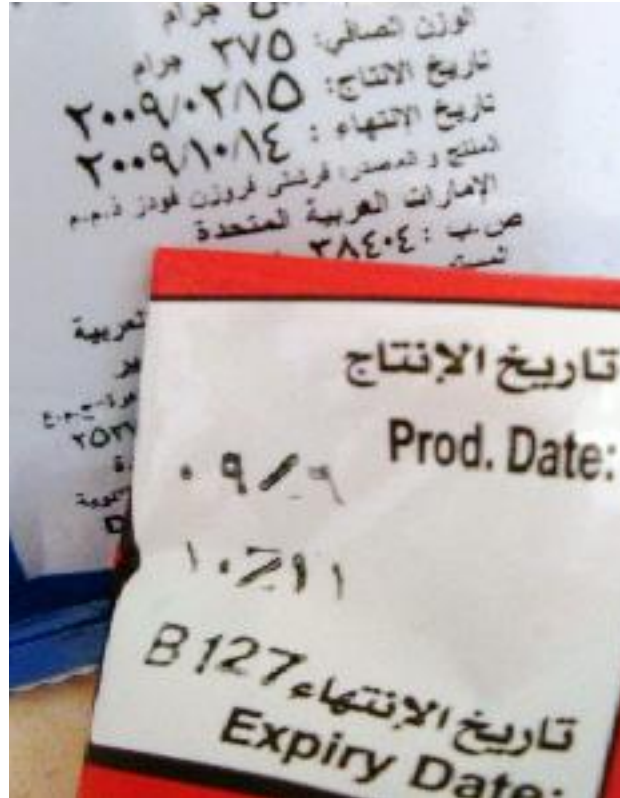 جرام
الوزن الصافي: ٣٧٥ جرام
تاريخ الانتاج: ٢٠٠٩/٠٢/١٥
تاريخ الانتهاء : ٢٠٠٩/١٠/١٤
المنتج و المصدر: فروزن فودز ذ.م.م
الإمارات العربية المتحدة
ص.ب : ٣٨٤٠٤
تاريخ الإنتاج
Prod. Date:
٠٩/٠٩
١٠/١١
B 127
تاريخ الإنتهاء
Expiry Date: